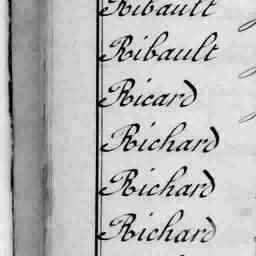 Ribault
Ribault
Ricard
Richard
Richard
Richard